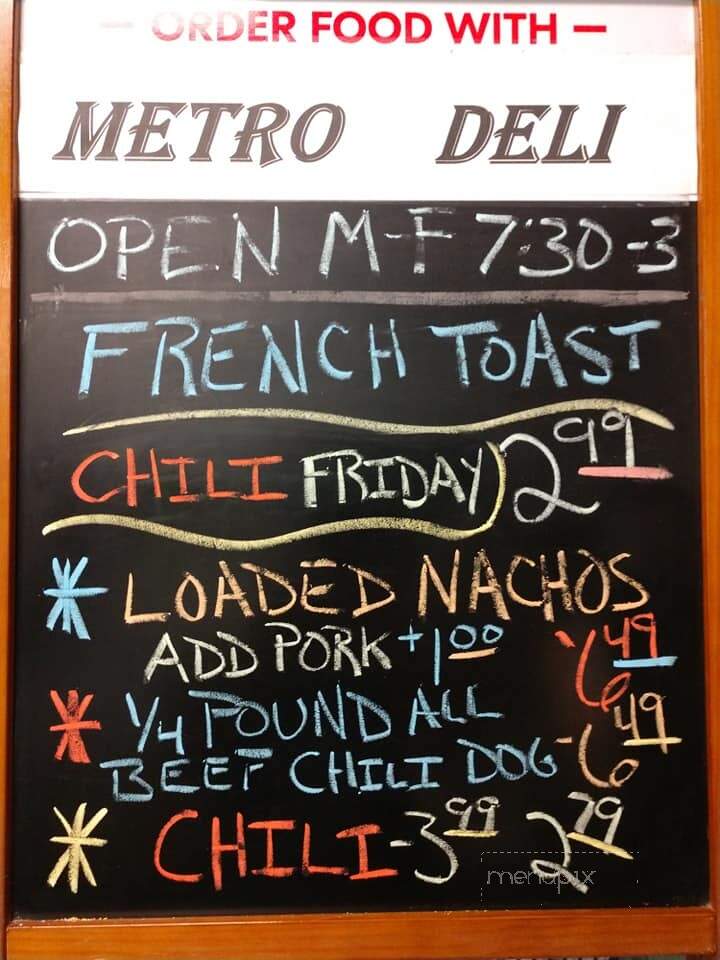 — ORDER FOOD WITH —
METRO DELI
OPEN M-F 7:30-3
FRENCH TOAST
CHILI FRIDAY 2.99
* LOADED NACHOS
ADD PORK +1.00 6.49
* 1/4 POUND ALL
BEEF CHILI DOG - 6.49
* CHILI - 3.99 2.79
menupix